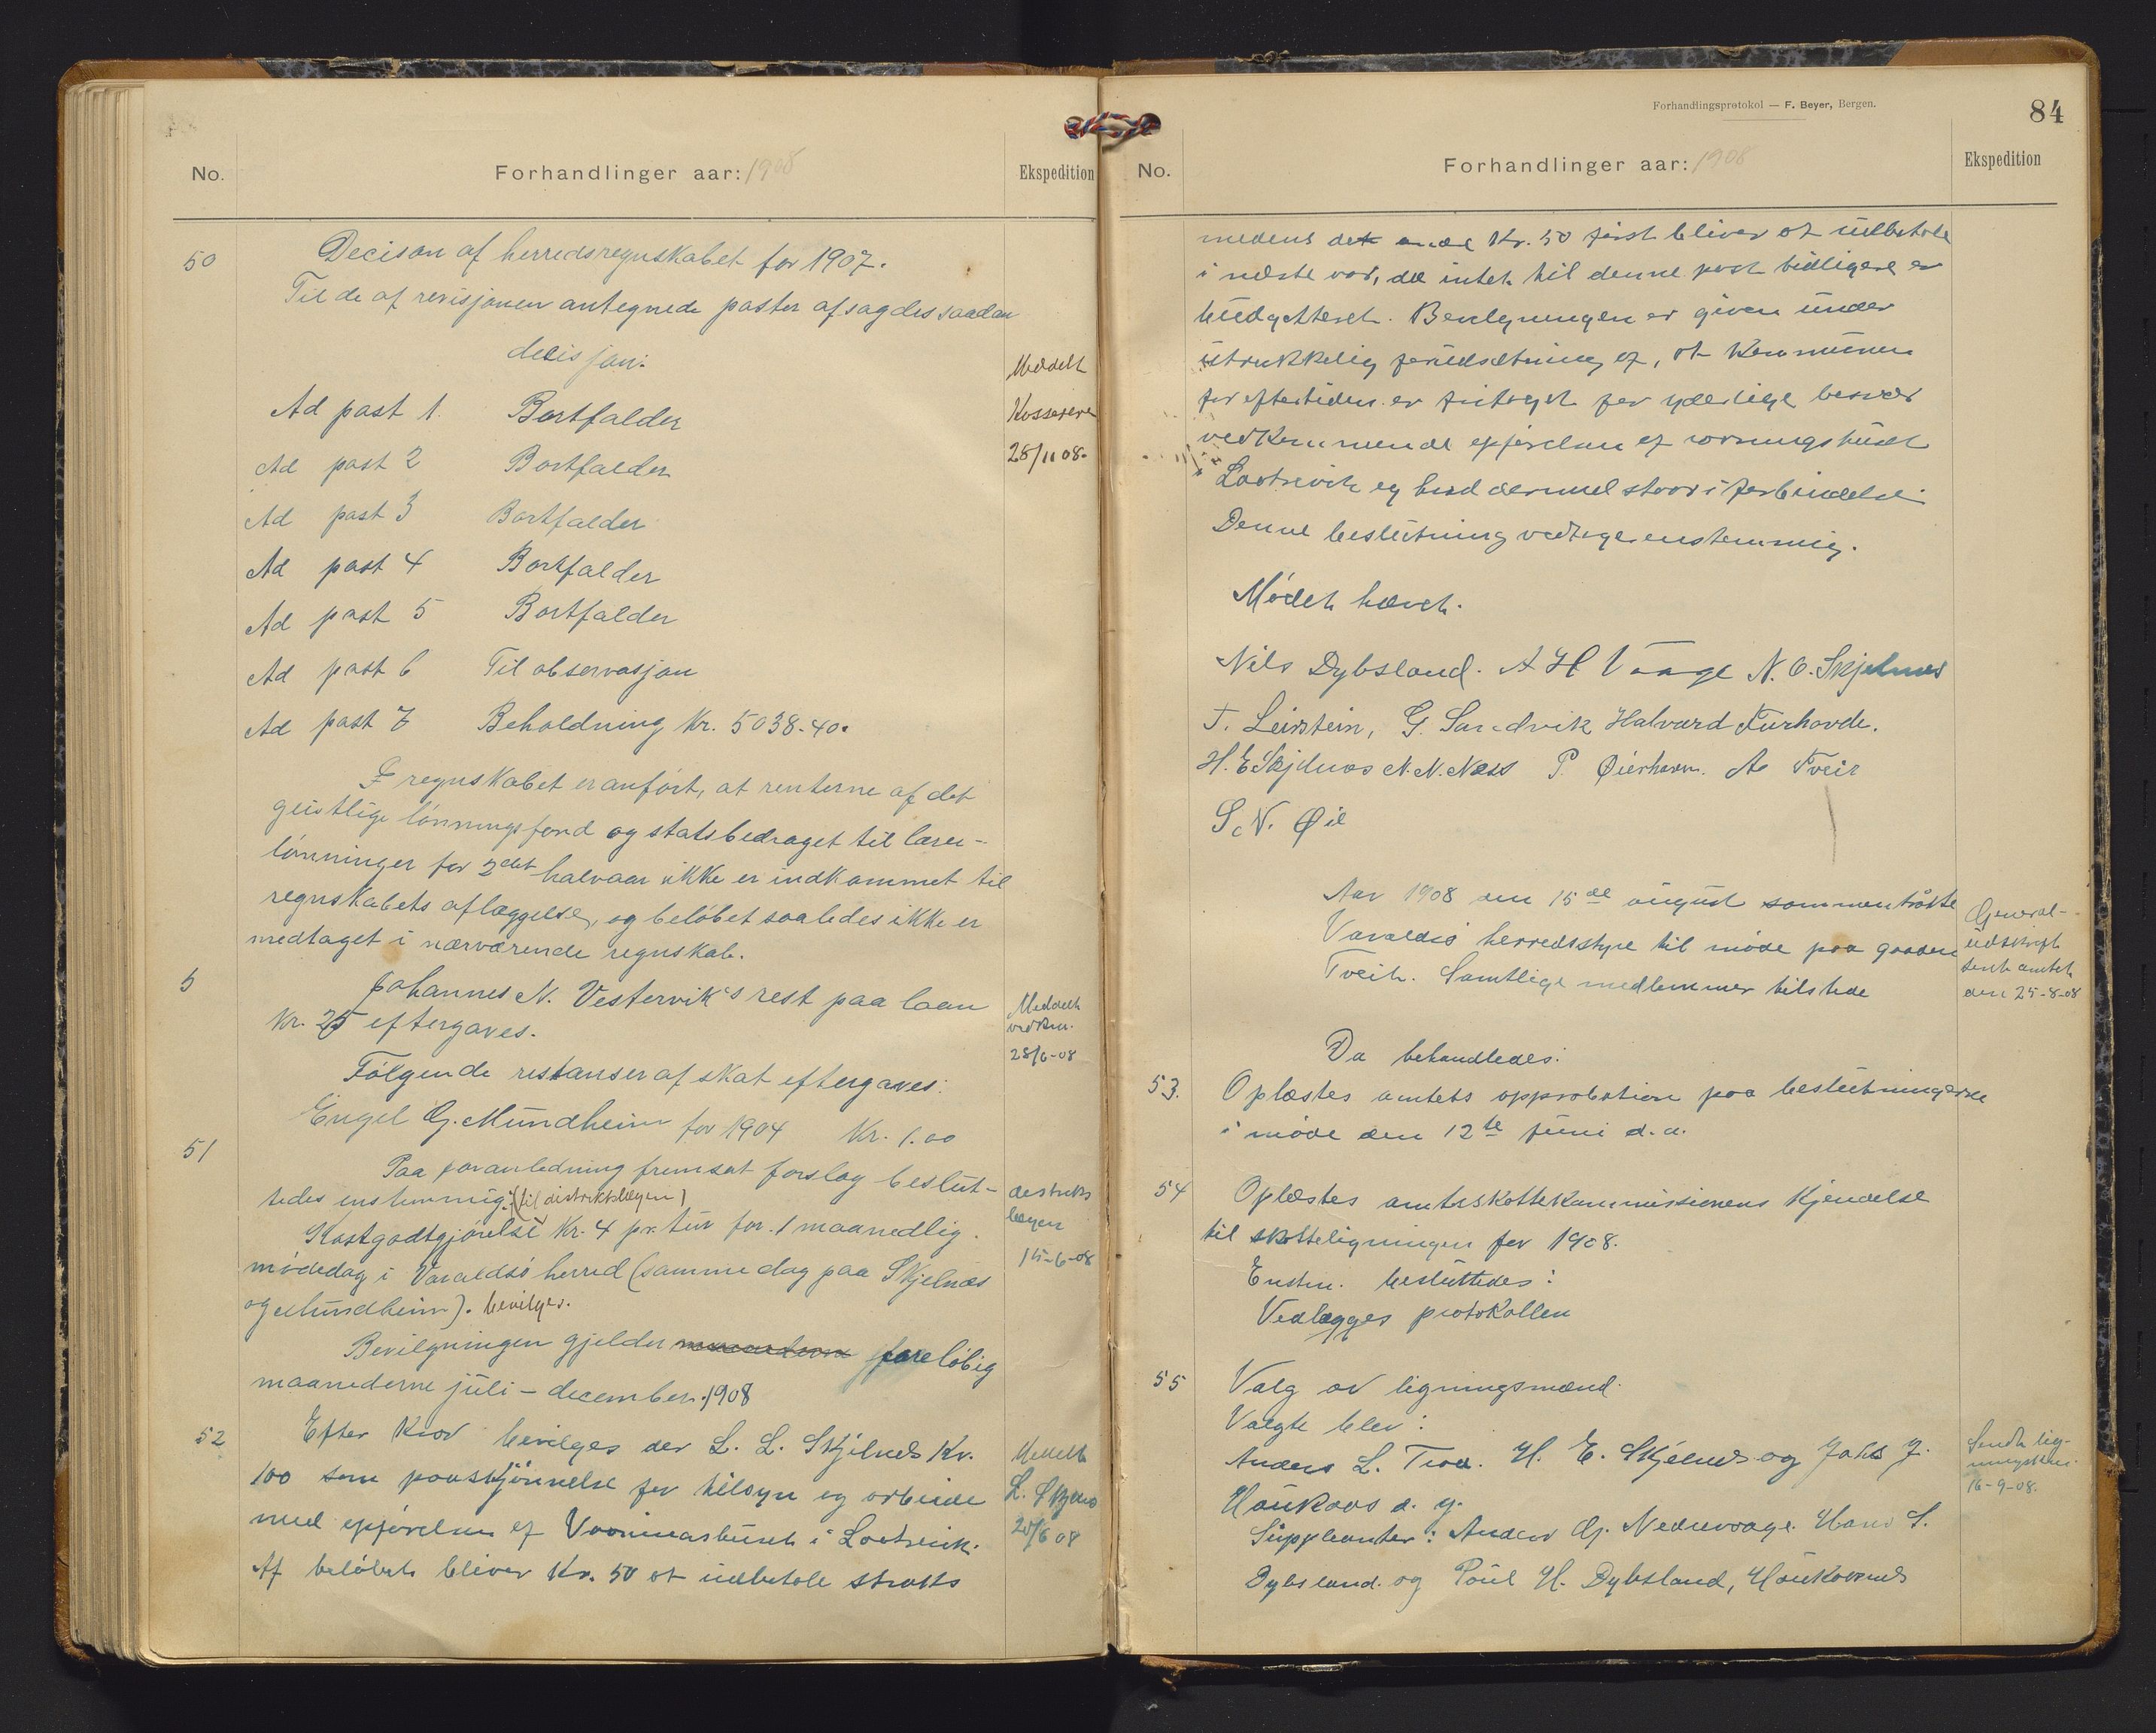 No.
Forhandlinger aar: 1908
Ekspedition
50
Decison af herredsregnskabet for 1907.
Til de af revisjonen antegnede poster afsagdes saadan
decisjon:
Ad post 1. Bortfalder
Ad post 2 Bortfalder
Ad post 3 Bortfalder
Ad post 4 Bortfalder
Ad post 5 Bortfalder
Ad post 6 Til observasjon
Ad post 7 Beholdning Kr. 5038.40.
Meddelt
Kassereren
28/11 08.
I regnskabet er anført, at renterne af det
geistlige lønningsfond og statsbedraget til lærer-
lønninger for 2det halvaar ikke er indkommet til
regnskabets aflæggelse, og beløbet saaledes ikke er
medtaget i nærværende regnskab.
5
Johannes N. Vestervik's rest paa laan
Kr. 25 eftergaves.
Meddelt
vedkm.
28/6-08
Følgende restanser af skat eftergaves:
Engel G. Mundheim for 1904 Kr. 1.00
51
Paa foranledning fremsat forslag beslut-
tedes enstemmig: (til distriktslægen)
Kostgodtgjørelse Kr. 4 pr. tur for 1 maanedlig
mødedag i Varaldsø herred (samme dag paa Skjelnæs
og Mundheim). bevilges.
distrikts
lægen
15-6-08
Bevilgningen gjelder foreløbig
maanederne juli - december 1908
52
Efter krav bevilges der L. L. Skjelnes Kr.
100 som paaskjønnelse for tilsyn og arbeide
med opførelsen af Vaaningshuset i Laatrevik.
Af beløbet bliver Kr. 50 at udbetale straks
Meddelt
L. Skjelnes
20/6 08
Forhandlingsprotokol — F. Beyer, Bergen.
84
No.
Forhandlinger aar: 1908
Ekspedition
medens det andre Kr. 50 først bliver at udbetale
i næste aar, da intet til denne post tidligere er
budgetteret. Bevilgningen er given under
utrykkelig forudsætning af, at Kommunen
for eftertiden er fritaget for yderlige besvær
vedkommende opførelsen af vaaningshuset
i Laatrevik og hvad dermed staar i forbindelse.
Denne beslutning vedtoges enstemmig.
Mødet hævet.
Nils Dybsland. A H Vaage N. O. Skjelnes
T. Leirstein, G. Sandvik Halvard Furhovde.
H. E Skjelnæs N. N. Næss P. Øierhavn. A Tveit
S. N. Øie
Aar 1908 den 15de august sammentraadte
Varaldsø herredsstyre til møde paa gaarden
Tveit. Samtlige medlemmer tilstede
General-
udskrift
sendt amtet
den 25-8-08
Da behandledes:
53.
Oplæstes amtets approbation paa beslutningerne
i møde den 12te juni d.a.
54
Oplæstes amtsskattekommissionens Kjendelse
til skatteligningen for 1908.
Enstm. besluttedes:
Vedlægges protokollen
55
Valg av ligningsmænd.
Valgte blev:
Anders L. Tveit. H. E. Skjelnes og Jakob J.
Haukaas d. y.
Suppleanter: Anders G. Nedrevaage. Hans S.
Dybsland. og Poul H. Dybsland, Haukanes
Sendt lig-
ningskom.
16-9-08.